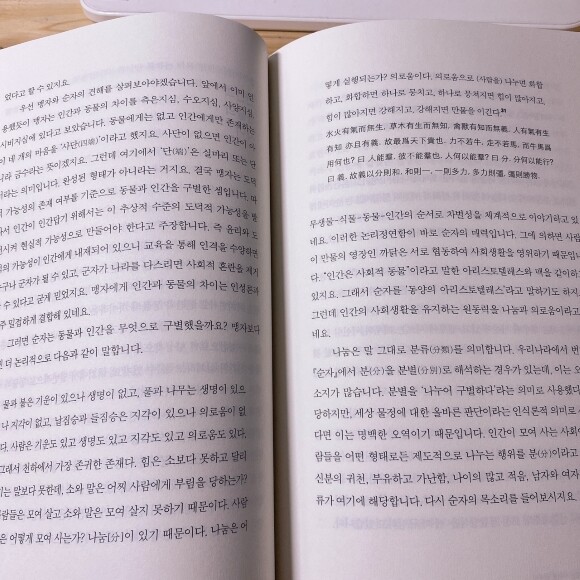 었다고 할 수 있지요.
우선 맹자와 순자의 견해를 살펴보아야겠습니다. 앞에서 이미 인
용했듯이 맹자는 인간과 동물의 차이를 측은지심, 수오지심, 사양지심,
시비지심에 있다고 보았습니다. 동물에게는 없고 인간에게만 존재하는
이 네 개의 마음을 '사단(四端)'이라고 했지요. 사단이 없으면 인간이 아
니라 금수라는 뜻이겠지요. 그런데 여기에서 '단(端)'은 실마리 또는 단
라는 의미입니다. 완성된 형태가 아니라는 거지요. 결국 맹자는 도덕
적 가능성의 존재 여부를 기준으로 동물과 인간을 구별한 셈입니다. 따
라서 인간이 인간답기 위해서는 이 추상적 수준의 도덕적 가능성을
시켜 현실적 가능성으로 만들어야 한다고 주장합니다. 즉 윤리와 도
의 가능성이 인간에게 내재되어 있으니 교육을 통해 인격을 수양하면
구나 군자가 될 수 있고, 군자가 나라를 다스리면 사회적 혼란을 제거
수 있다고 굳게 믿었지요. 맹자에게 인간과 동물의 차이는 인성론과
주 밀접하게 결합해 있네요.
그러면 순자는 동물과 인간을 무엇으로 구별했을까요? 맹자보다
더 논리적으로 다음과 같이 말합니다.
물과 불은 기운이 있으나 생명이 없고, 풀과 나무는 생명이 있으
나 지각이 없고, 날짐승과 들짐승은 지각이 있으나 의로움이 없
다. 사람은 기운도 있고 생명도 있고 지각도 있고 의로움도 있다.
그래서 천하에서 가장 존귀한 존재다. 힘은 소보다 못하고 달리
기는 말보다 못한데, 소와 말은 어찌 사람에게 부림을 당하는가?
사람들은 모여 살고 소와 말은 모여 살지 못하기 때문이다. 사람
은 어떻게 모여 사는가? 나눔[分]이 있기 때문이다. 나눔은 어
떻게 실행되는가? 의로움이다. 의로움으로 (사람을) 나누면 화합
하고, 화합하면 하나로 뭉치고, 하나로 뭉치면 힘이 많아지고,
힘이 많아지면 강해지고, 강해지면 만물을 이긴다
水火有氣而無生, 草木有生而無知, 禽獸有知而無義, 人有氣有生
有知 亦且有義. 故最爲天下貴也. 力不若牛, 走不若馬, 而牛馬爲
用何也? 曰 人能羣, 彼不能羣也. 人何以能羣? 曰 分. 分何以能行?
曰 義. 故義以分則和, 和則一, 一則多力, 多力則彊, 彊則勝物.
무생물-식물-동물-인간의 순서로 차별성을 체계적으로 이야기하고 있
네요. 이러한 논리정연함이 바로 순자의 매력입니다. 그에 의하면 사람
이 만물의 영장인 까닭은 서로 협동하여 사회생활을 영위하기 때문입니
다. "인간은 사회적 동물"이라고 말한 아리스토텔레스와 맥을 같이하
있지요. 그래서 순자를 '동양의 아리스토텔레스'라고 말하기도 하지
그런데 인간의 사회생활을 유지하는 원동력을 나눔과 의로움이라고
네요.
나눔은 말 그대로 분류(分類)를 의미합니다. 우리나라에서 번
『순자』에서 분(分)을 분별(分別)로 해석하는 경우가 있는데, 이는 오
소지가 많습니다. 분별을 '나누어 구별하다'라는 의미로 사용했다
당하지만, 세상 물정에 대한 올바른 판단이라는 인식론적 의미로 사
다면 이는 명백한 오역이기 때문입니다. 인간이 모여 사는 사회에
람들을 어떤 형태로든 제도적으로 나누는 행위를 분(分)이라고
신분의 귀천, 부유하고 가난함, 나이의 많고 적음, 남자와 여자
류가 여기에 해당합니다. 다시 순자의 목소리를 들어보시지요.